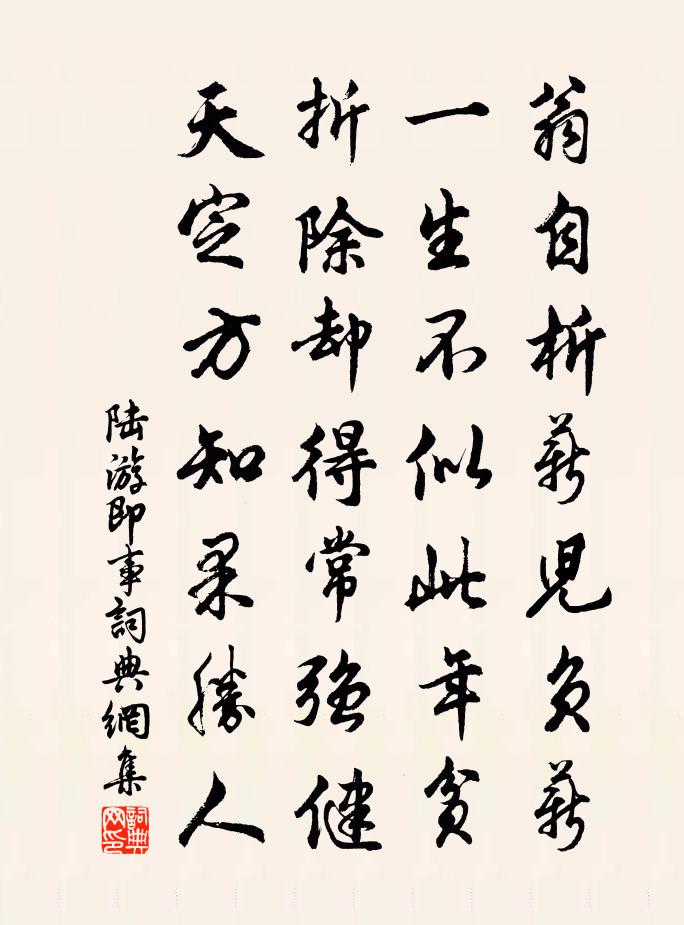 翁自析薪兒負薪
一生不似此年貧
折除却得常強健
天定方知果勝人
陸游即事詞典網集
詞典
网印